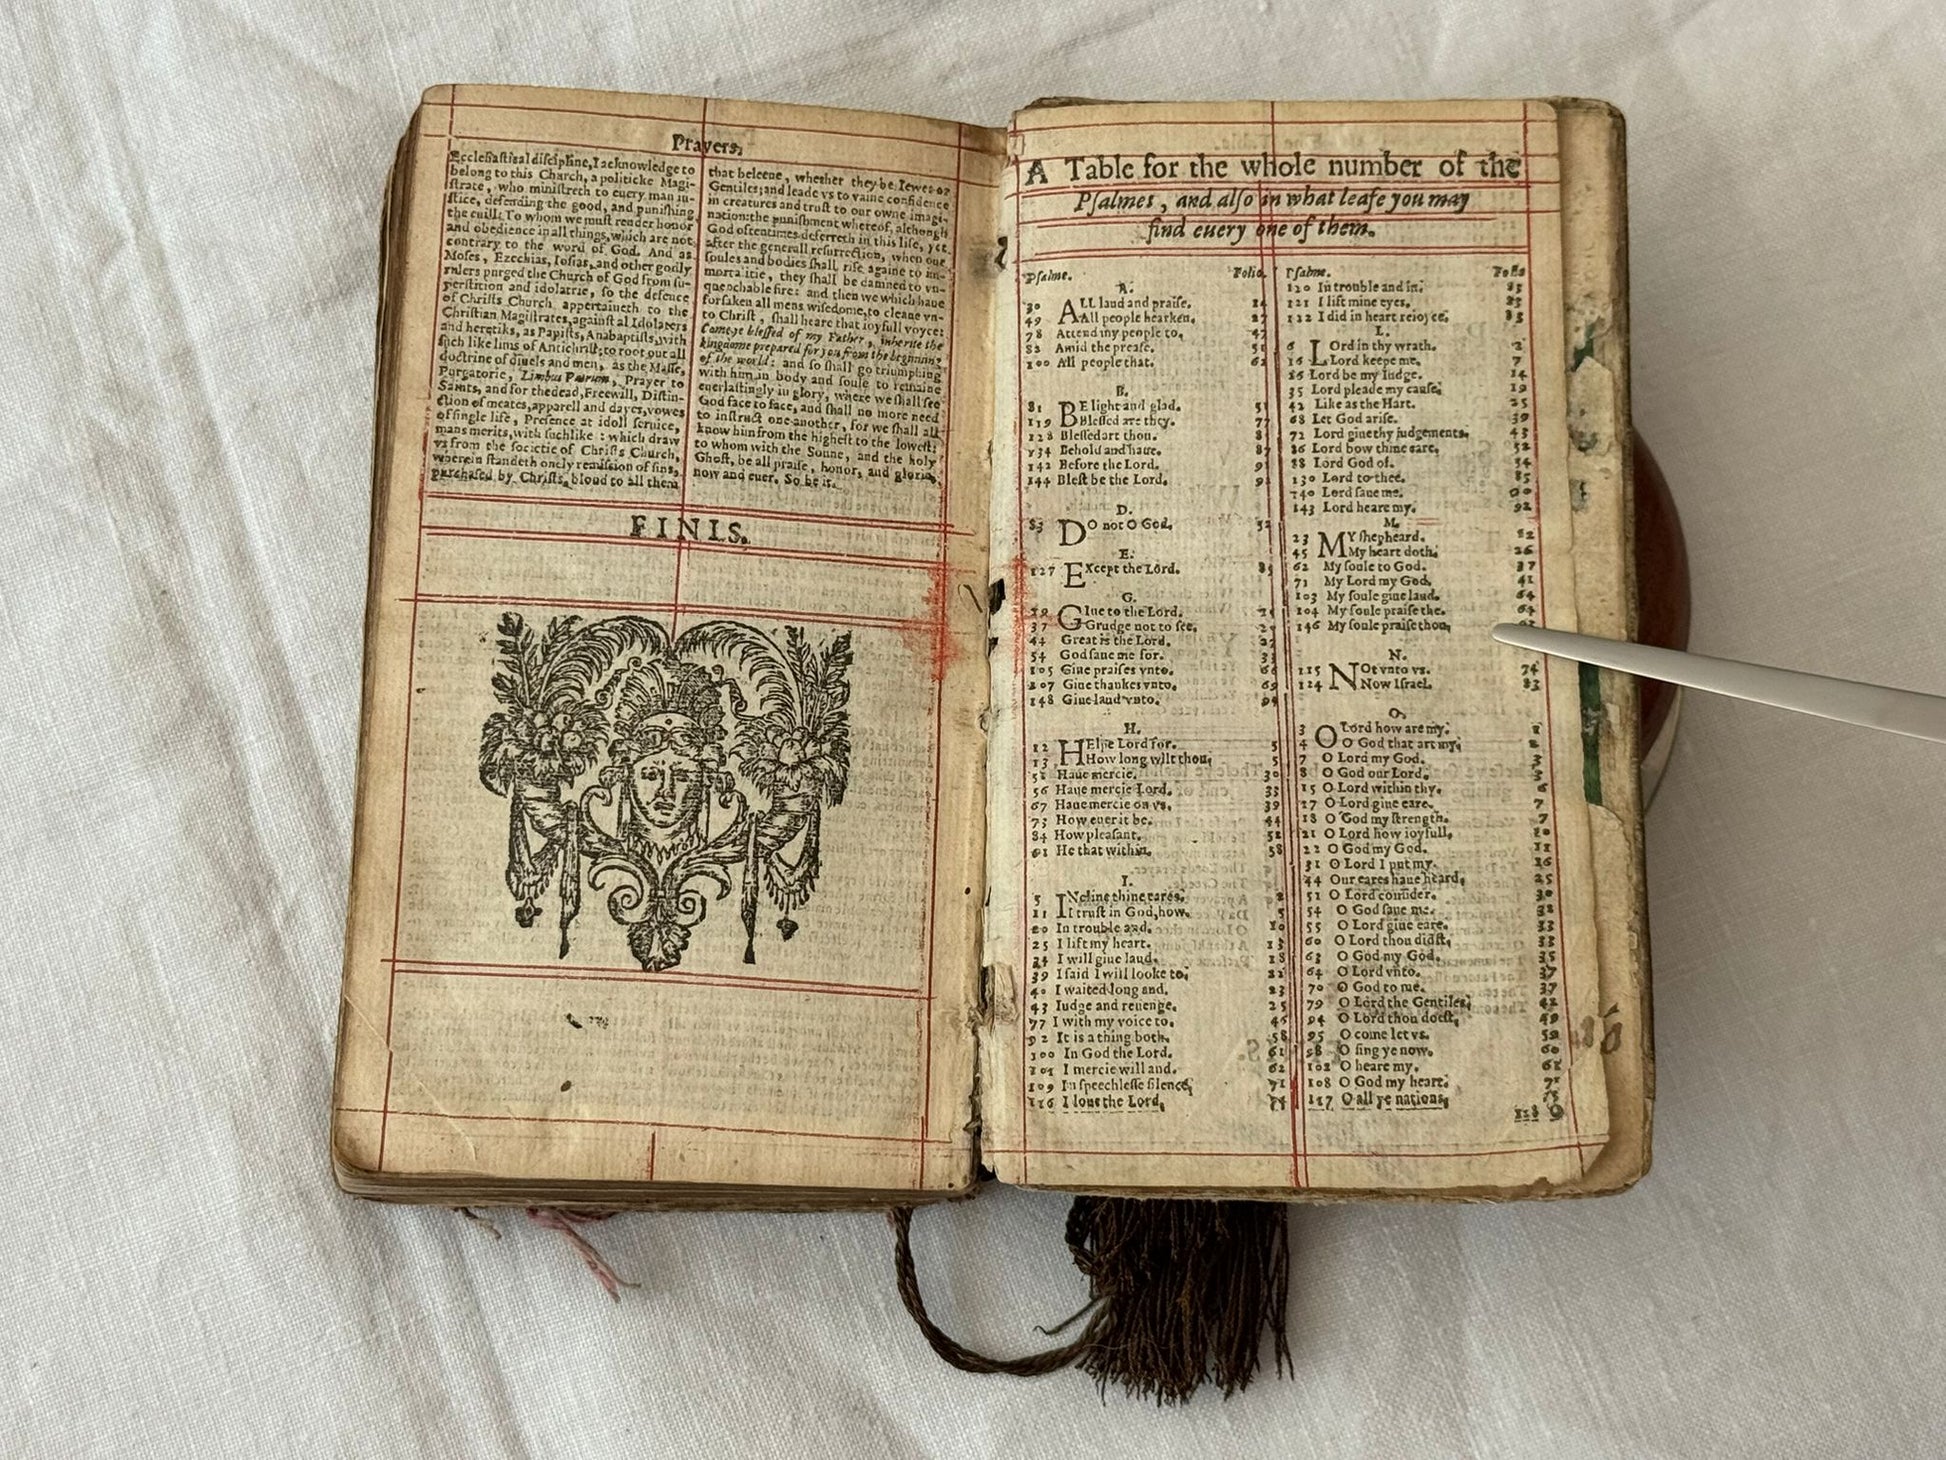 Prayers.
Ecclesiasticall discipline, I acknowledge to
belong to this Church, a politicke Magi-
strate, who ministreth to euery man iu-
stice, defending the good, and punishing
the euill: To whom we must render honor
and obedience in all things, which are not
contrary to the word of God. And as
Moses, Ezechias, Iosias, and other godly
rulers purged the Church of God from su-
perstition and idolatrie, so the defence
of Christs Church appertaineth to the
Christian Magistrates, against al Idolaters
and heretiks, as Papists, Anabaptists, with
such like lims of Antichrist: to root out all
doctrine of diuels and men, as the Masse,
Purgatorie, Limbus Patrum, Prayer to
Saints, and for the dead, Freewill, Distin-
ction of meates, apparell and dayes, vowes
of single life, Presence at idoll seruice,
mans merits, with suchlike: which draw
vs from the societie of Christs Church,
wherein standeth onely remission of sins,
purchased by Christs bloud to all them
that beleeue, whether they be Iewes or
Gentiles; and leade vs to vaine confidence
in creatures and trust to our owne imagi-
nation: the punishment whereof, although
God oftentimes deferreth in this life, yet
after the generall resurrection, when our
soules and bodies shall rise againe to im-
mortalitie, they shall be damned to vn-
quenchable fire: and then we which haue
forsaken all mens wisedome, to cleaue vn-
to Christ, shall heare that ioyfull voyce:
Come ye blessed of my Father, inherite the
kingdome prepared for you from the beginning
of the world: and so shall go triumphing
with him in body and soule to remaine
euerlastingly in glory, where we shall see
God face to face, and shall no more need
to instruct one another, for we shall all
know him from the highest to the lowest:
to whom with the Sonne, and the holy
Ghost, be all praise, honor, and glorie,
now and euer. So be it.
FINIS.
A Table for the whole number of the
Psalmes, and also in what leafe you may
find euery one of them.
Psalme. Folio.
A.
30 ALL laud and praise.
49 All people hearken. 27
78 Attend my people to. 47
82 Amid the prease. 51
100 All people that. 62
B.
81 BE light and glad. 51
119 Blessed are they. 77
128 Blessed art thou.
134 Behold and haue. 87
142 Before the Lord. 91
144 Blest be the Lord.
D.
83 DO not O God. 52
E.
127 EXcept the Lord. 85
G.
GIue to the Lord.
37 Grudge not to see.
44 Great is the Lord.
54 God saue me for.
105 Giue praises vnto.
107 Giue thankes vnto. 69
148 Giue laud vnto.
H.
12 HElpe Lord for. 5
13 How long wilt thou. 5
51 Haue mercie. 30
56 Haue mercie Lord. 33
67 Haue mercie on vs. 39
73 How euer it be. 44
84 How pleasant. 52
91 He that within. 58
I.
5 INcline thine eares. 2
11 I trust in God, how. 5
20 In trouble and. 10
25 I lift my heart. 13
34 I will giue laud. 18
39 I said I will looke to. 22
40 I waited long and. 23
43 Iudge and reuenge. 25
77 I with my voice to. 46
92 It is a thing both. 58
100 In God the Lord. 61
101 I mercie will and. 62
109 In speechlesse silence. 71
116 I loue the Lord.
Psalme. Folio
120 In trouble and in. 83
121 I lift mine eyes. 83
122 I did in heart reioyce. 83
L.
6 LOrd in thy wrath. 2
16 Lord keepe me. 7
26 Lord be my Iudge. 14
35 Lord pleade my cause. 19
42 Like as the Hart. 25
68 Let God arise. 39
72 Lord giue thy iudgements. 43
86 Lord bow thine eare. 52
88 Lord God of. 54
130 Lord to thee. 85
140 Lord saue me. 90
143 Lord heare my. 92
M.
23 MY shepheard. 12
45 My heart doth. 26
62 My soule to God. 37
71 My Lord my God. 41
103 My soule giue laud. 64
104 My soule praise the. 64
146 My soule praise thou.
N.
115 NOt vnto vs. 74
124 Now Israel. 83
O.
3 O Lord how are my. 1
4 O God that art my. 2
7 O Lord my God. 3
8 O God our Lord. 3
15 O Lord within thy. 6
17 O Lord giue eare. 7
18 O God my strength. 7
21 O Lord how ioyfull. 10
22 O God my God. 11
31 O Lord I put my. 16
44 Our eares haue heard. 25
51 O Lord consider. 30
54 O God saue me. 32
55 O Lord giue eare. 33
60 O Lord thou didst. 33
63 O God my God. 35
64 O Lord vnto. 37
70 O God to me. 37
79 O Lord the Gentiles. 42
94 O Lord thou doest. 49
95 O come let vs. 59
98 O sing ye now. 60
102 O heare my. 61
108 O God my heart. 71
117 O all ye nations. 75
118 O